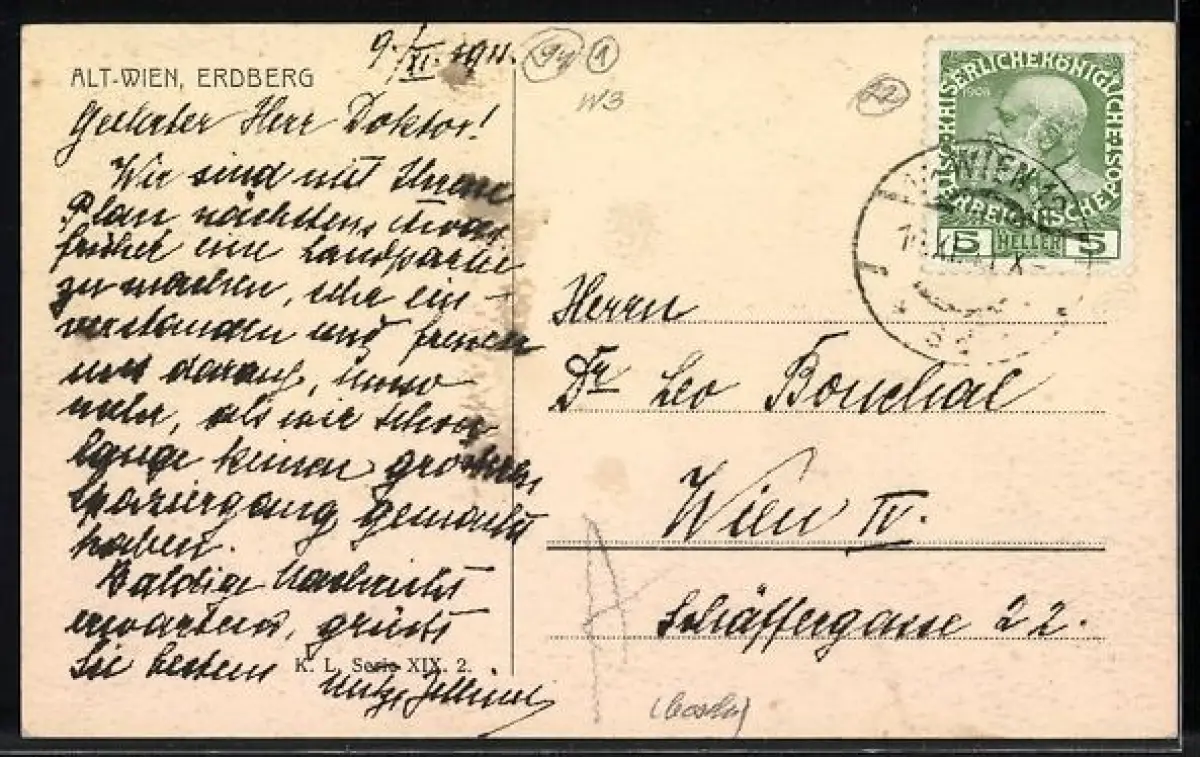 ALT-WIEN, ERDBERG
9./XI. 1911.
Geehrter Herr Doktor!
Wir sind mit Ihrem
Plan nächstens etwas
früher eine Landpartie
zu machen, sehr ein-
verstanden und freuen
uns darauf, umso
mehr, als wir schon
lange keinen grösseren
Spaziergang gemacht
haben.
Baldige Nachricht
erwartend, grüsst
Sie bestens
K. L. Serie XIX. 2.
94 1
W3
22
KAISERLICHE KÖNIGLICHE ÖSTERREICHISCHE POST
1908
5 HELLER 5
WIEN
Herrn
Dr Leo Bouchal
Wien IV.
Schäffergasse 22.